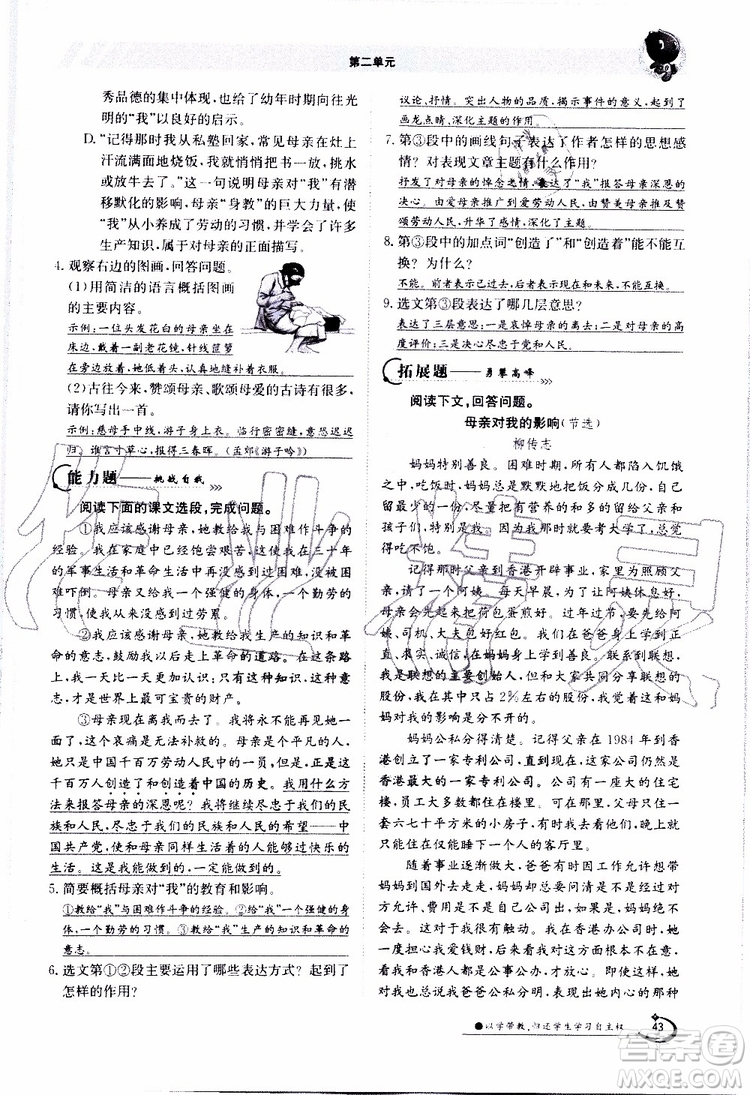 第二单元
秀品德的集中体现,也给了幼年时期向往光
明的“我”以良好的启示。
D. “记得那时我从私塾回家,常见母亲在灶上
汗流满面地烧饭,我就悄悄把书一放,挑水
或放牛去了。”这一句说明母亲对“我”有潜
移默化的影响,母亲“身教”的巨大力量,
使“我”从小养成了劳动的习惯,学会了许多
生产知识,属于对母亲的正面描写。
4. 观察右边的图画,回答问题。
(1)用简洁的语言概括图画
的主要内容。
示例:一位头发花白的母亲坐在
床边,戴着一副老花镜,针线筐箩
在旁边放着,她低着头,认真地缝补着衣服。
(2)古往今来,赞颂母亲、歌颂母爱的古诗有很多,
请你写出一首。
示例:慈母手中线,游子身上衣。临行密密缝,意恐迟迟
归。谁言寸草心,报得三春晖。(孟郊《游子吟》)
能力题——挑战自我
阅读下面的课文选段,完成问题。
①我应该感谢母亲,她教给我与困难作斗争的
经验。我在家庭中已经饱尝艰苦,这使我在三十年
的军事生活和革命生活中再没感到过困难,没被困
难吓倒。母亲又给我一个强健的身体,一个勤劳的
习惯,使我从来没感到过劳累。
②我应该感谢母亲,她教给我生产的知识和革
命的意志,鼓励我走上革命的道路。在这条路
上,我一天比一天更加认识:只有这种知识,这种意
志,才是世界上最可宝贵的财产。
③母亲现在离我而去了。我将永不能再见她一
面了,这个哀痛是无法补救的。母亲是个平凡的人,她
只是中国千百万劳动人民中的一员,但是,正是这
千百万人创造了和创造着中国的历史。我用什么方
法来报答母亲的深恩呢?我将继续尽忠于我们的民
族和人民,尽忠于我们的民族和人民的希望——中
国共产党,使和母亲同样生活着的人能够过快乐的
生活。这是我能做到的,一定能做到的。
5. 简要概括母亲对“我”的教育和影响。
①教给“我”与困难作斗争的经验。②给“我”一个强健的身
体,一个勤劳的习惯。③教给“我”生产的知识和革命的
意志。
6. 选文第①②段主要运用了哪些表达方式?起到了
怎样的作用?
议论、抒情。突出人物的品质,揭示事件的意义,起到了
画龙点睛、深化主题的作用。
7. 第③段中的画线句子表达了作者怎样的思想感
情?对表现文章主题有什么作用?
抒发了对母亲的悼念之情,表达了“我”报答母亲深恩的
决心。由爱母亲推广到爱劳动人民,由赞美母亲到赞
颂劳动人民,升华了感情,深化了主题。
8. 第③段中的加点词“创造了”和“创造着”能不能互
换?为什么?
不能。前者表示已过去,后者表示现在和未来。
9. 选文第③段表达了哪几层意思?
表达了三层意思:一是哀悼母亲;二是对母亲的高度
评价;三是决心尽忠于民族和人民。
拓展题——勇攀高峰
阅读下文,回答问题。
母亲对我的影响(节选)
柳传志
妈妈特别善良。困难时期,所有人都陷入饥饿
之中,吃饭时,妈妈总是默默地吃得很少,在我印象
中特别深刻。她总是把有营养的东西留给父亲和
孩子们,特别是我。因为那时我快要考大学了,总觉
得吃不饱。
记得那时父亲到香港开辟事业,家里有阿姨做
饭,礼拜六、礼拜天,为了让阿姨休息好,
母亲会先起来给大家做荷包蛋煎好。过年过节,要先给阿
姨、司机,大大包好红包。所以我们爸爸身上的正
直、求实、诚信,在妈妈身上全有。联系到联想,
我是联想的主要创始人,但是大家知道我在联想的
股份,只占到2%左右的股份,这些和爸爸
妈妈对我的影响是分不开的。
妈妈公私分得清楚。记得父亲在1984年到香
港创立了一家专利公司。这家公司现在已经变成
香港最大的一家专利公司。公司有一座大的住宅
楼,员工大多数都住在楼里。可妈妈和爸爸只住一
套六七十平方米的小房子,有时候我们去了,晚上
就只能有一个人在她的客厅里。
随着事业逐渐做大,爸爸有时工作允许想带
妈妈到国外去转转,妈妈总要问清楚,如果不是对
方允许,尽管爸爸是董事长,她也绝对不花公司一
分钱。这对我有很大的触动。我在香港办公司时,她
一度担心我爱钱财。后来她来到我香港的住所,她
在我家里看到,所有人都是公事公办,她才放心。她
在意我做到公私分明,是因为希望我能诚实地对人。
她为人内心真实,不会应酬。尽管这样,跟她
●以学带教,归还学生学习自主权
43
作业精灵
答案圈